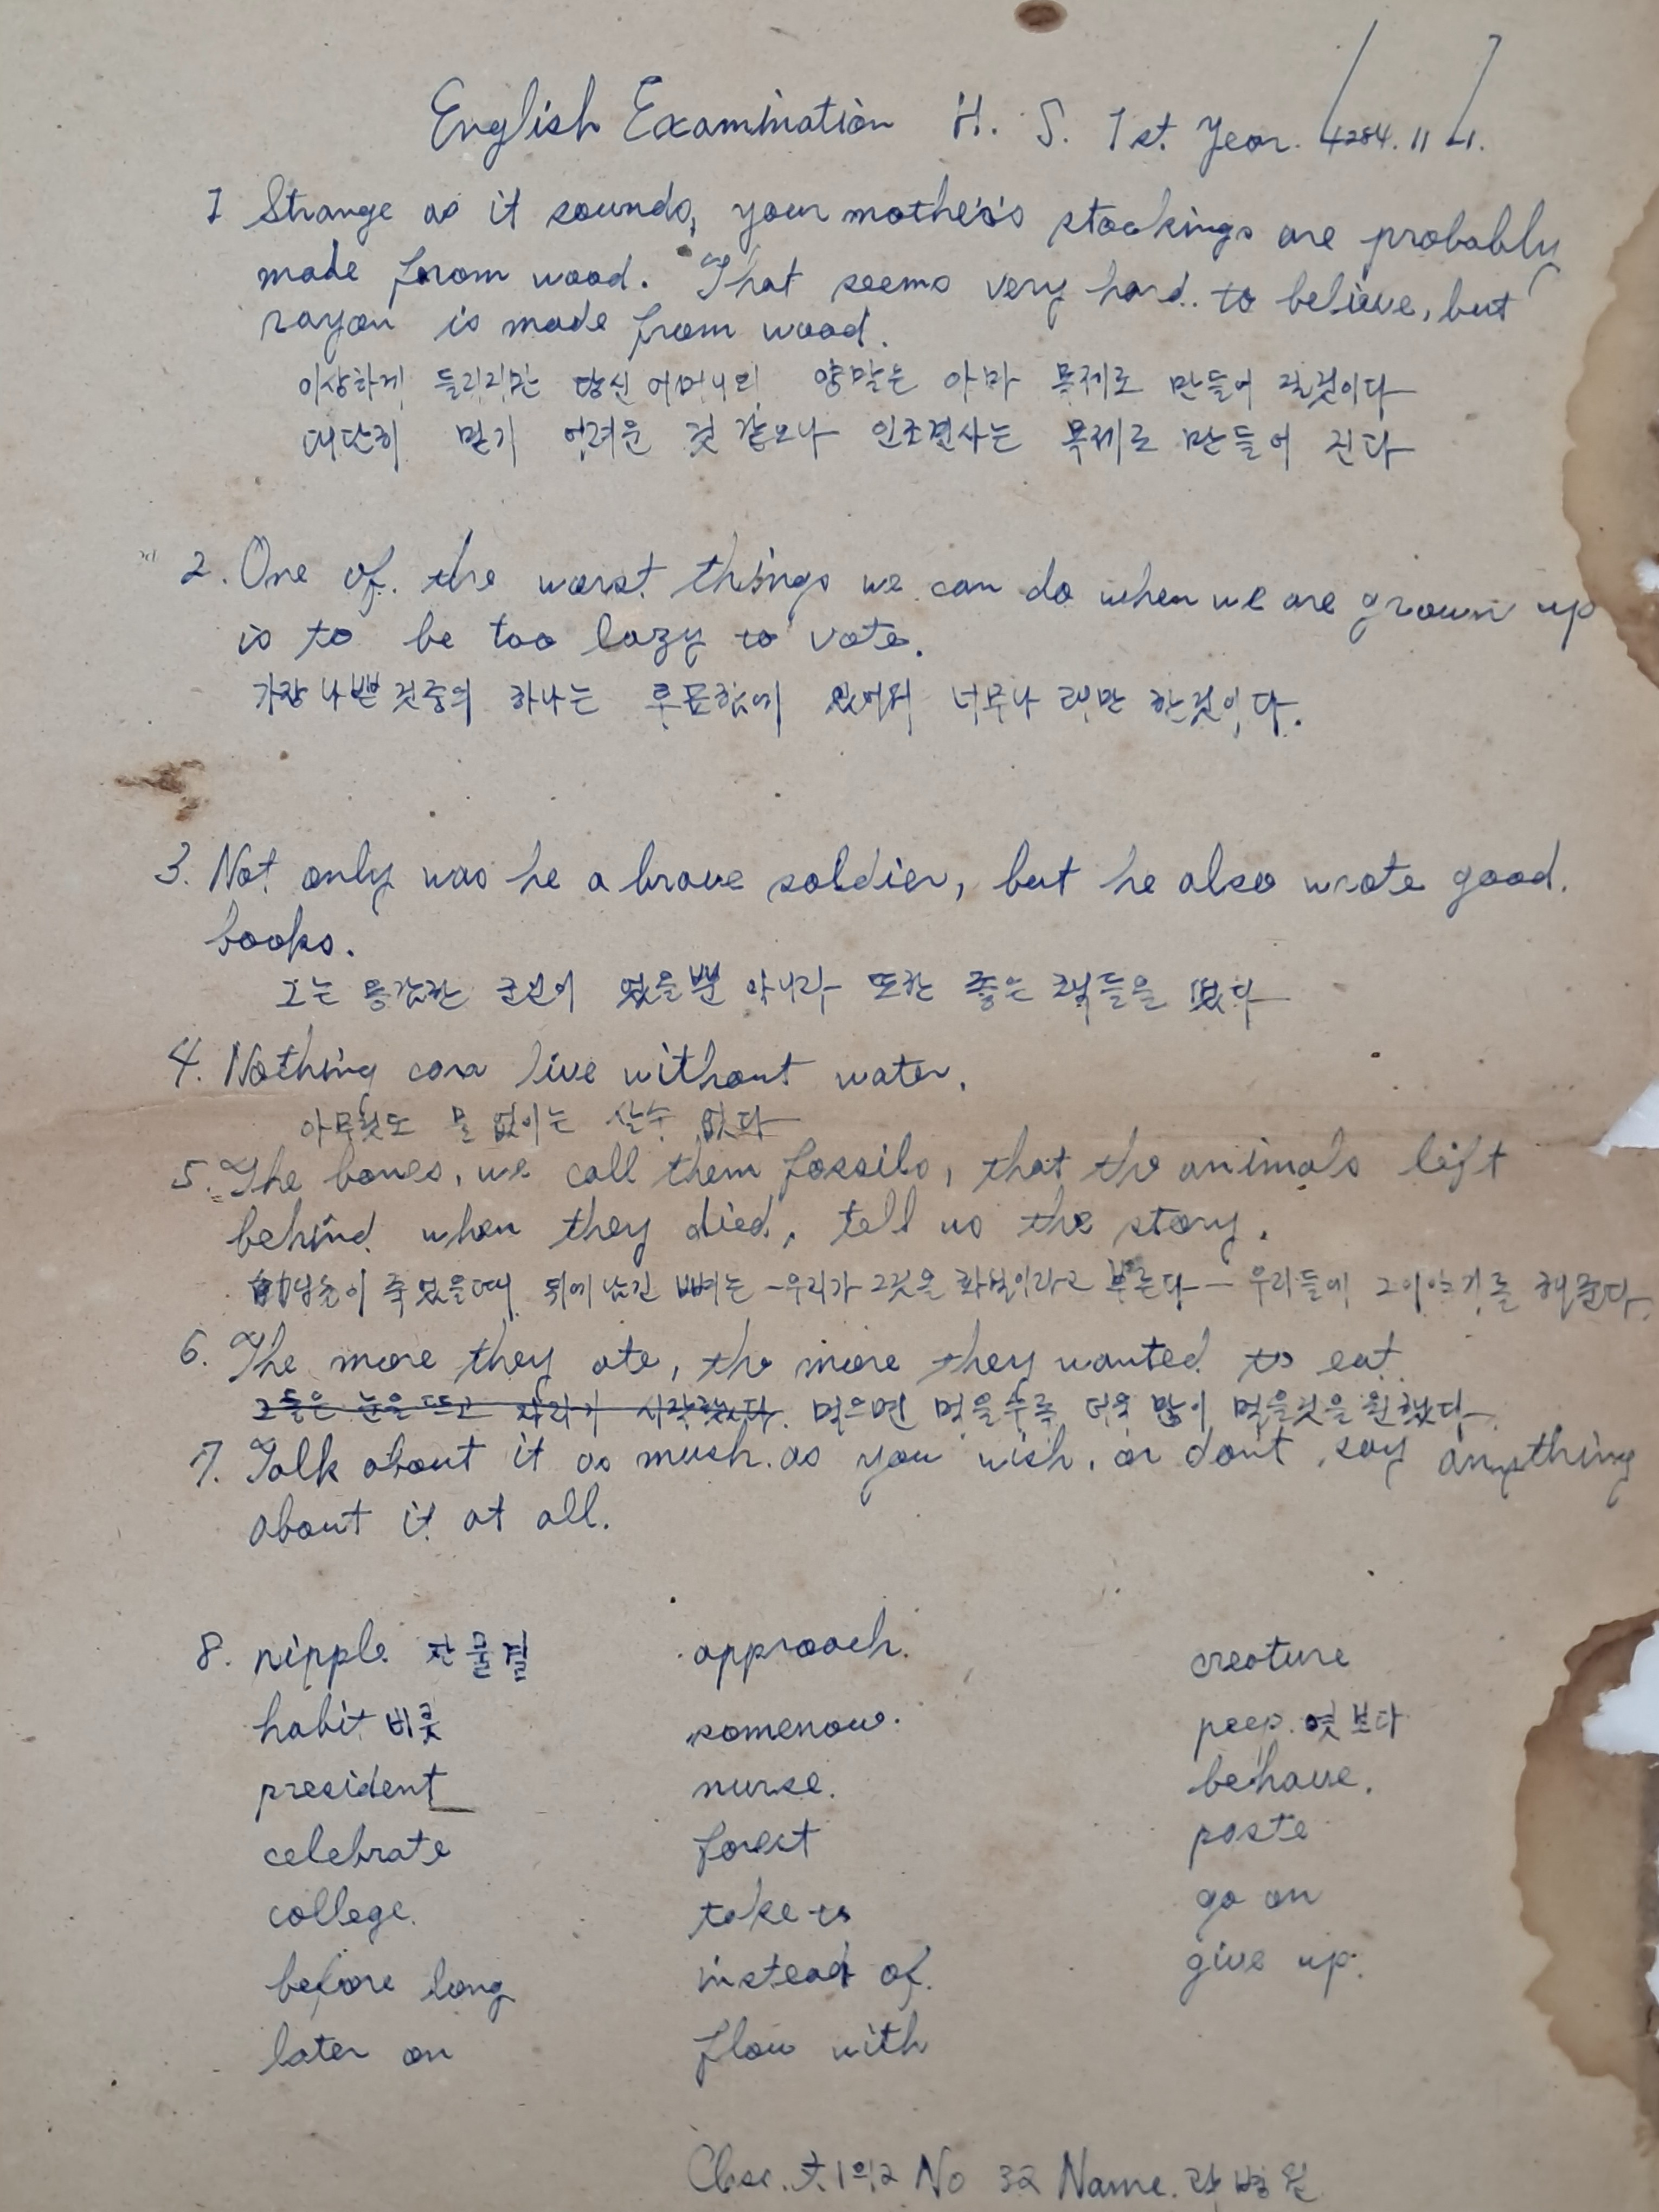 English Examination H. S. 1st. Year. 4284. 11
1 Strange as it sounds, your mother's stockings are probably
made from wood. That seems very hard to believe, but
rayon is made from wood.
이상하게 들리지만 당신 어머니의 양말은 아마 목제로 만들어 질것이다
대단히 믿기 어려운 것 같으나 인조견사는 목제로 만들어 진다
2. One of the worst things we can do when we are grown up
is to be too lazy to vote.
가장 나쁜 것중의 하나는 투표함에 있어서 너무나 태만 한것이다.
3. Not only was he a brave soldier, but he also wrote good
books.
그는 용감한 군인이 였을뿐 아니라 또한 좋은 책들을 썼다
4. Nothing can live without water.
아무것도 물 없이는 살수 없다
5. The bones, we call them fossils, that the animals left
behind when they died, tell us the story.
動物들이 죽었을때 뒤에 남긴 뼈는 -우리가 그것을 화석이라고 부른다- 우리들에 그이야기를 해준다
6. The more they ate, the more they wanted to eat
그들은 눈을 뜨고 자라기 시작했다. 먹으면 먹을수록 더욱 많이 먹을것을 원했다
7. Talk about it as much as you wish, or dont say anything
about it at all.
8. ripple 잔물결 approach. creature
habit 버릇 somehow. peep. 엿보다
president nurse. behave.
celebrate forest paste
college. take to go on
before long instead of. give up.
later on flow with
Class. 高 1의2 No 32 Name.